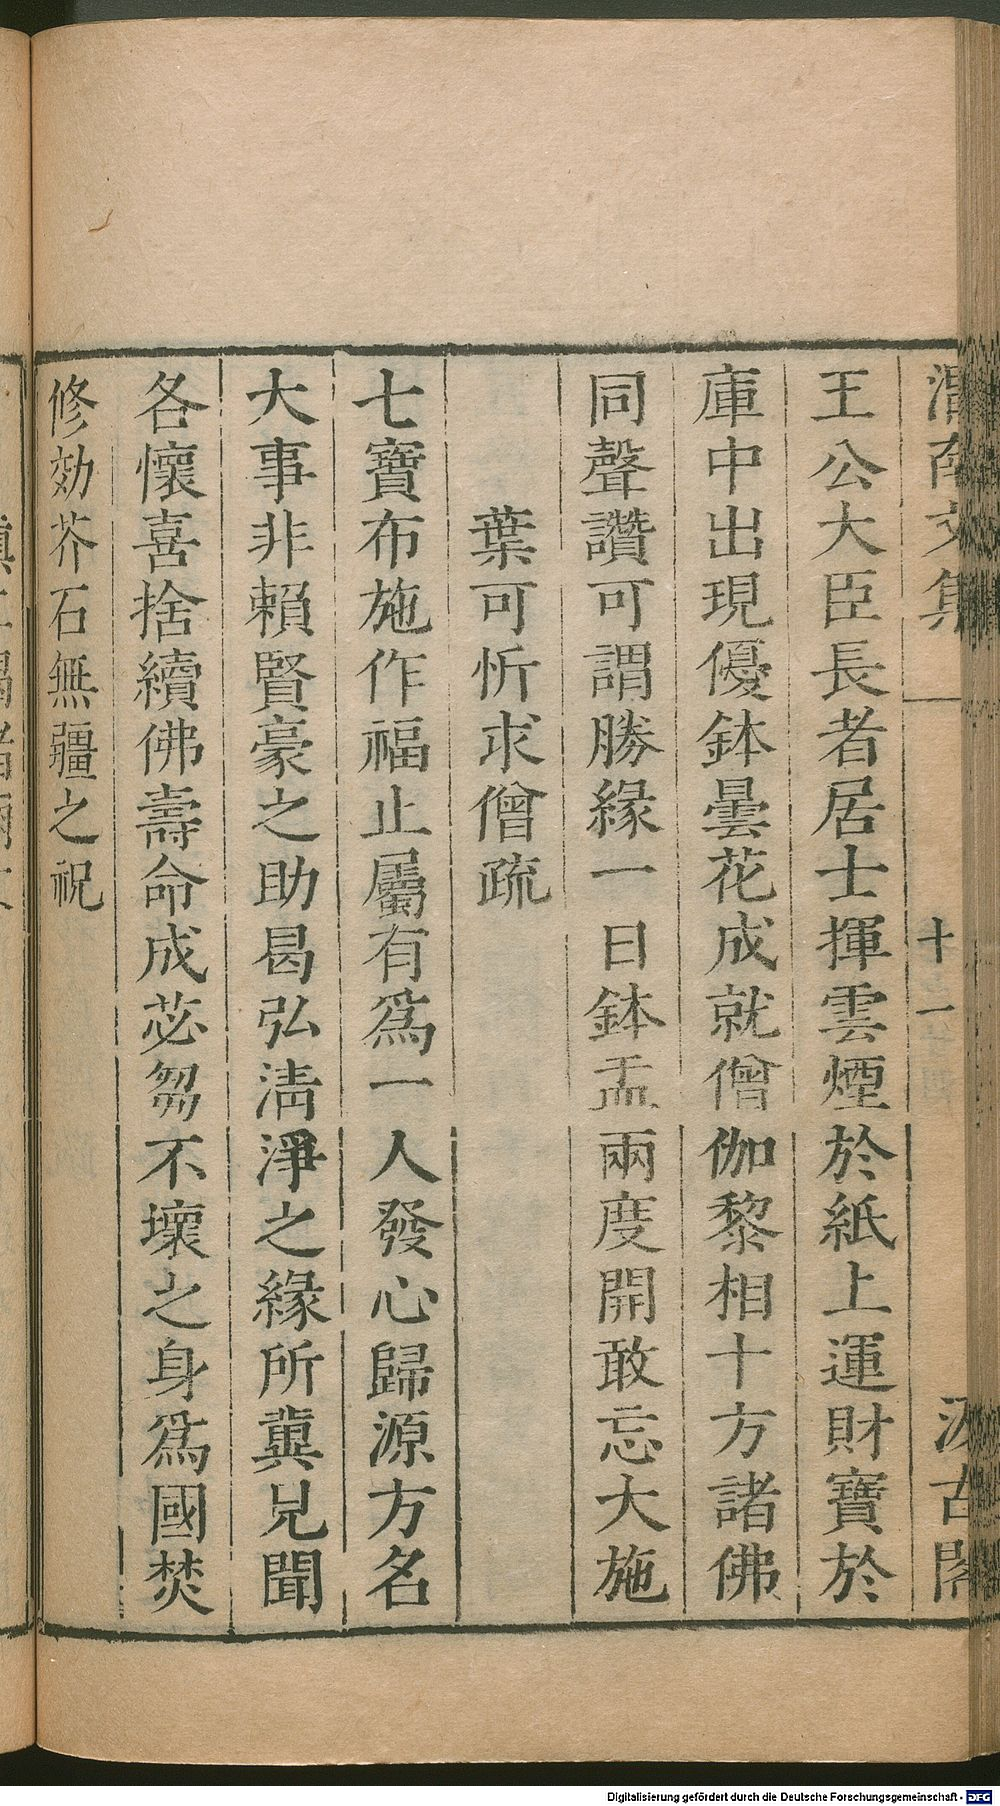 渭南文集 十一 汲古閣
王公大臣長者居士揮雲煙於紙上運財寶於
庫中出現優鉢曇花成就僧伽黎相十方諸佛
同聲讚可謂勝緣一日鉢盂兩度開敢忘大施
葉可忻求僧疏
七寶布施作福止屬有爲一人發心歸源方名
大事非賴賢豪之助曷弘淸淨之緣所冀見聞
各懷喜捨續佛壽命成苾芻不壞之身爲國焚
修効芥石無疆之祝
Digitalisierung gefördert durch die Deutsche Forschungsgemeinschaft - DFG